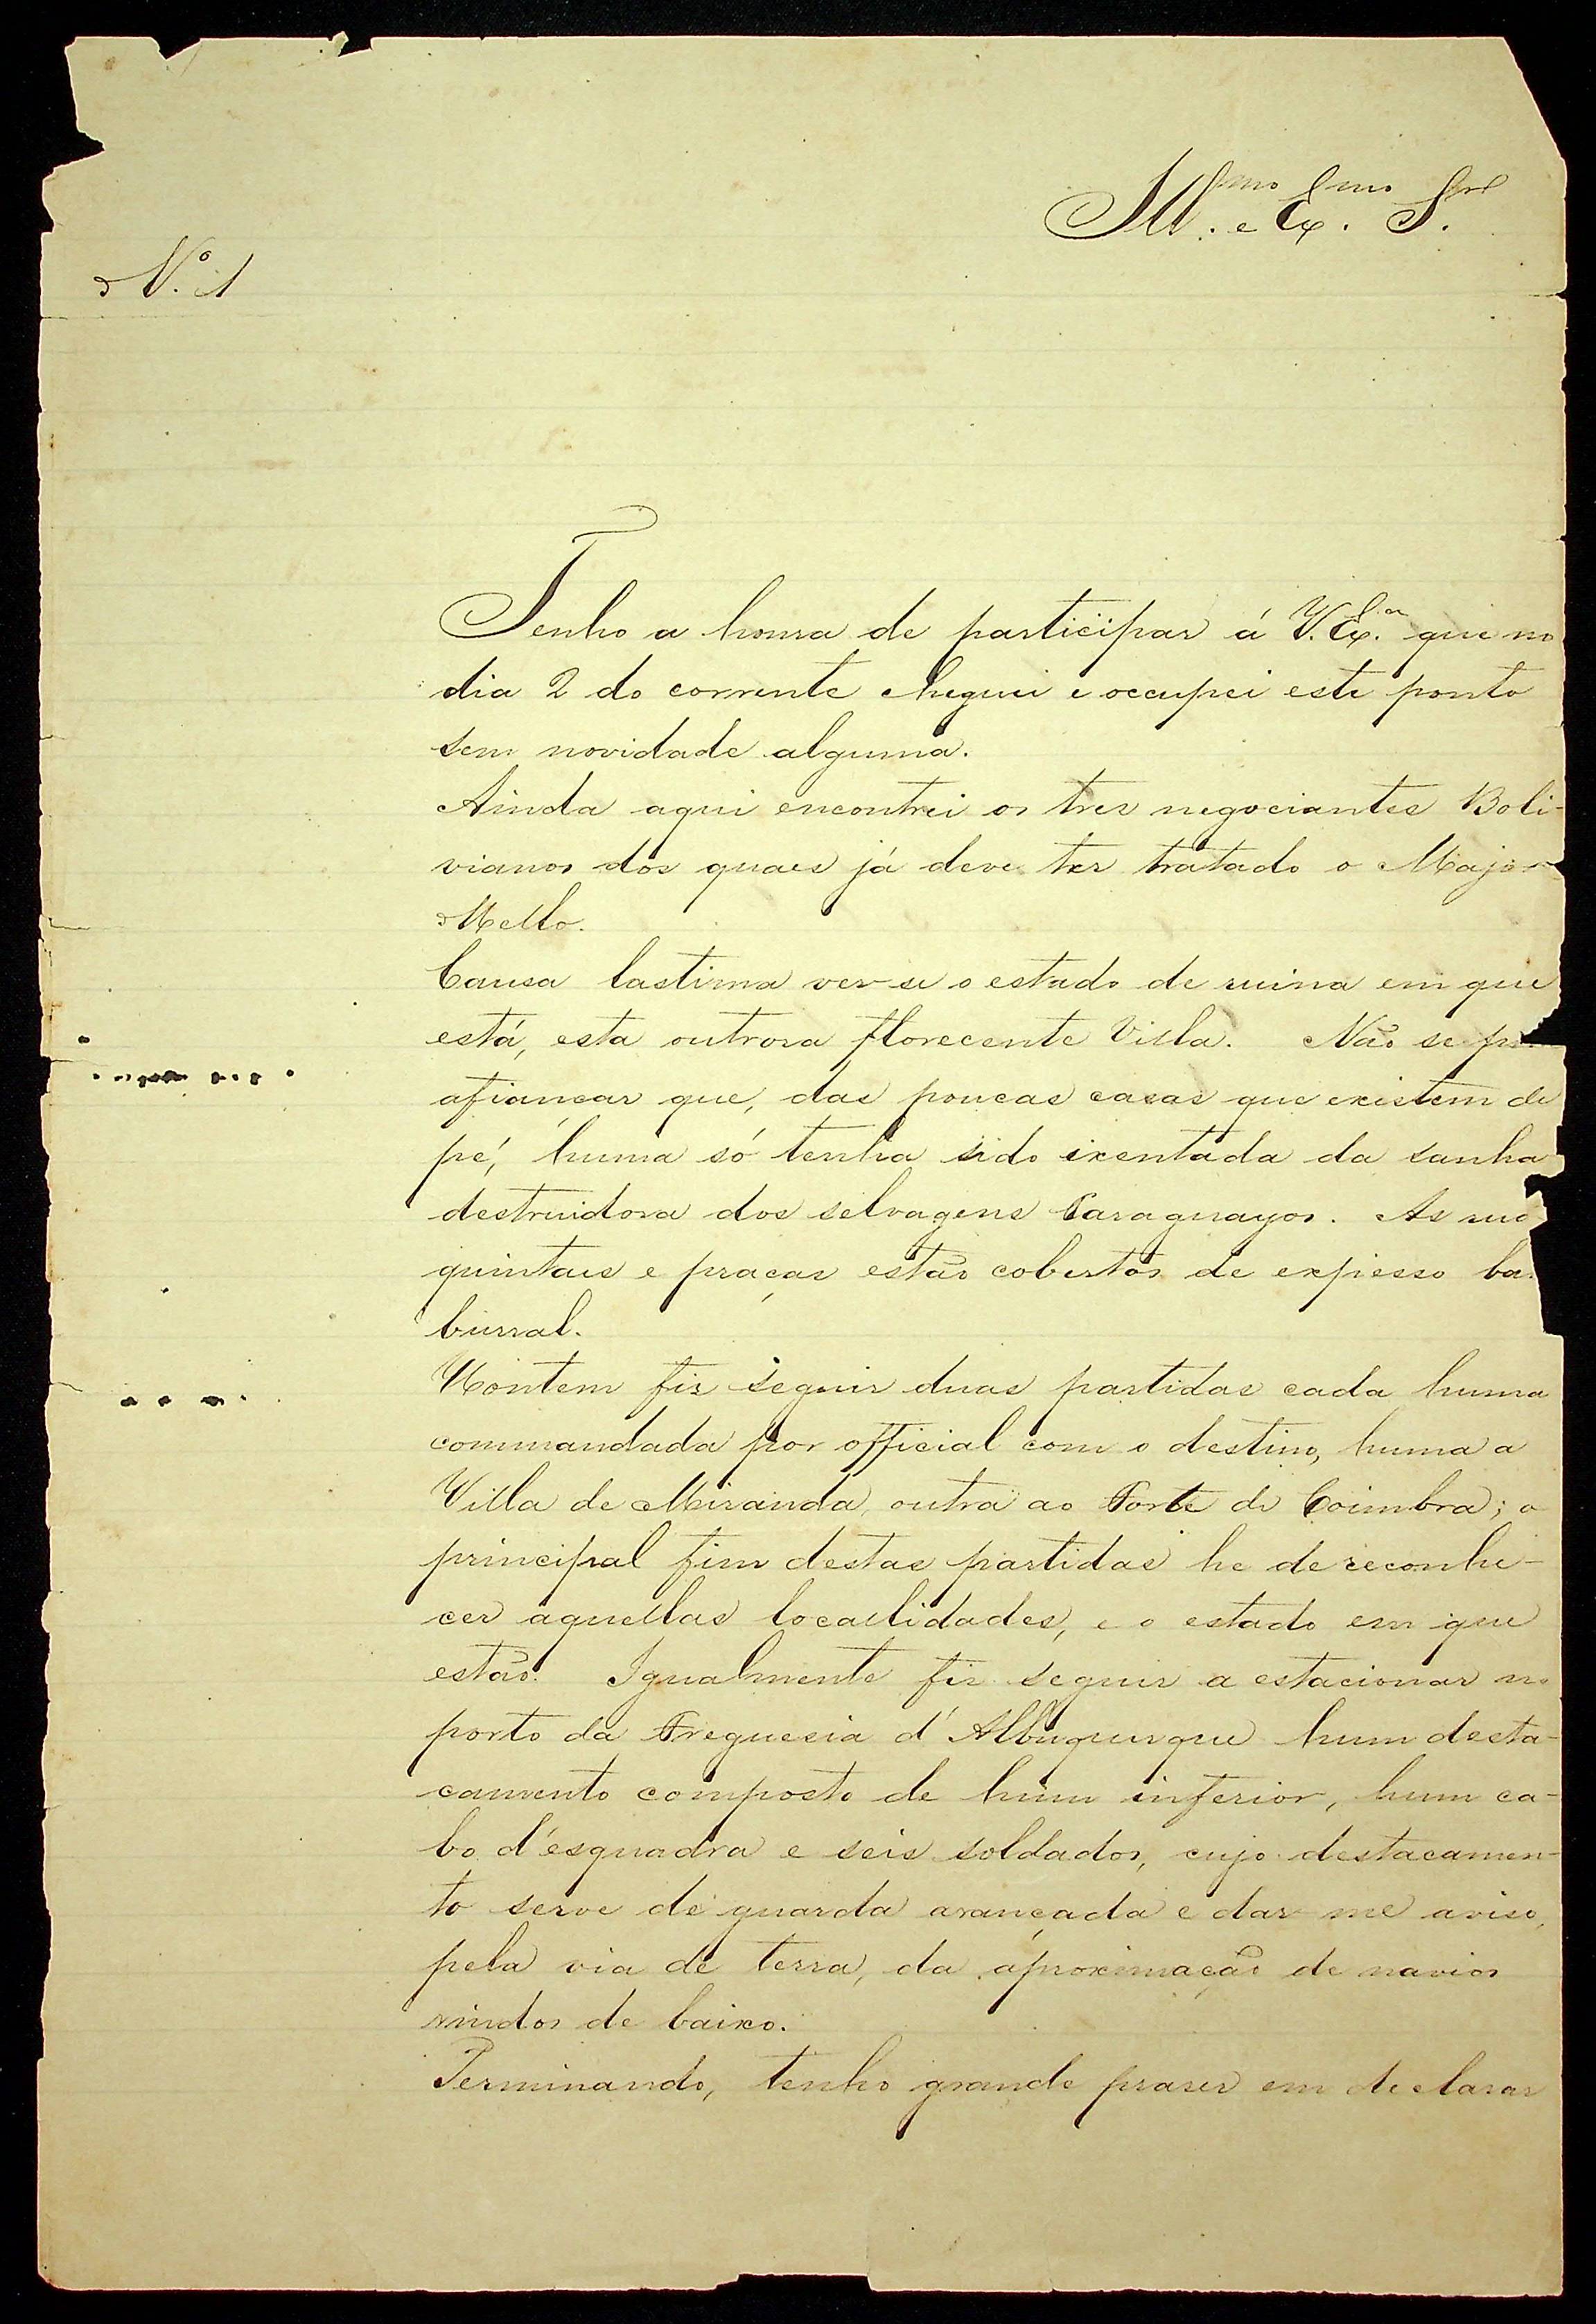 Ill.mo e Ex.mo Snr.
N.º 1
Tenho a honra de participar á V. Ex.cia que no
dia 2 do corrente cheguei e occupei este ponto
sem novidade alguma.
Ainda aqui encontrei os tres negociantes Boli-
vianos dos quaes já deve ter tratado o Major
Mello.
Causa lastima ver-se o estado de ruina em que
está, esta outrora florecente Villa. Não se
afiançar que, das poucas casas que existem de
pé, huma só tenha sido izentada da sanha
destruidora dos selvagens Paraguayos. As
quintaes e praças estão cobertos de expesso
burral.
Hontem fiz seguir duas partidas cada huma
commandada por official com o destino, huma a
Villa de Miranda, outra ao Forte de Coimbra; o
principal fim destas partidas he de reconhe-
cer aquellas locallidades, e o estado em que
estão. Igualmente fiz seguir a estacionar no
porto da Freguesia d'Albuquerque hum desta-
camento composto de hum inferior, hum ca-
bo d'esquadra e seis soldados, cujo destacamen-
to serve de guarda avançada e dar me aviso,
pela via de terra, da aproximação de navios
vindos de baixo.
Terminando, tenho grande praser em declarar